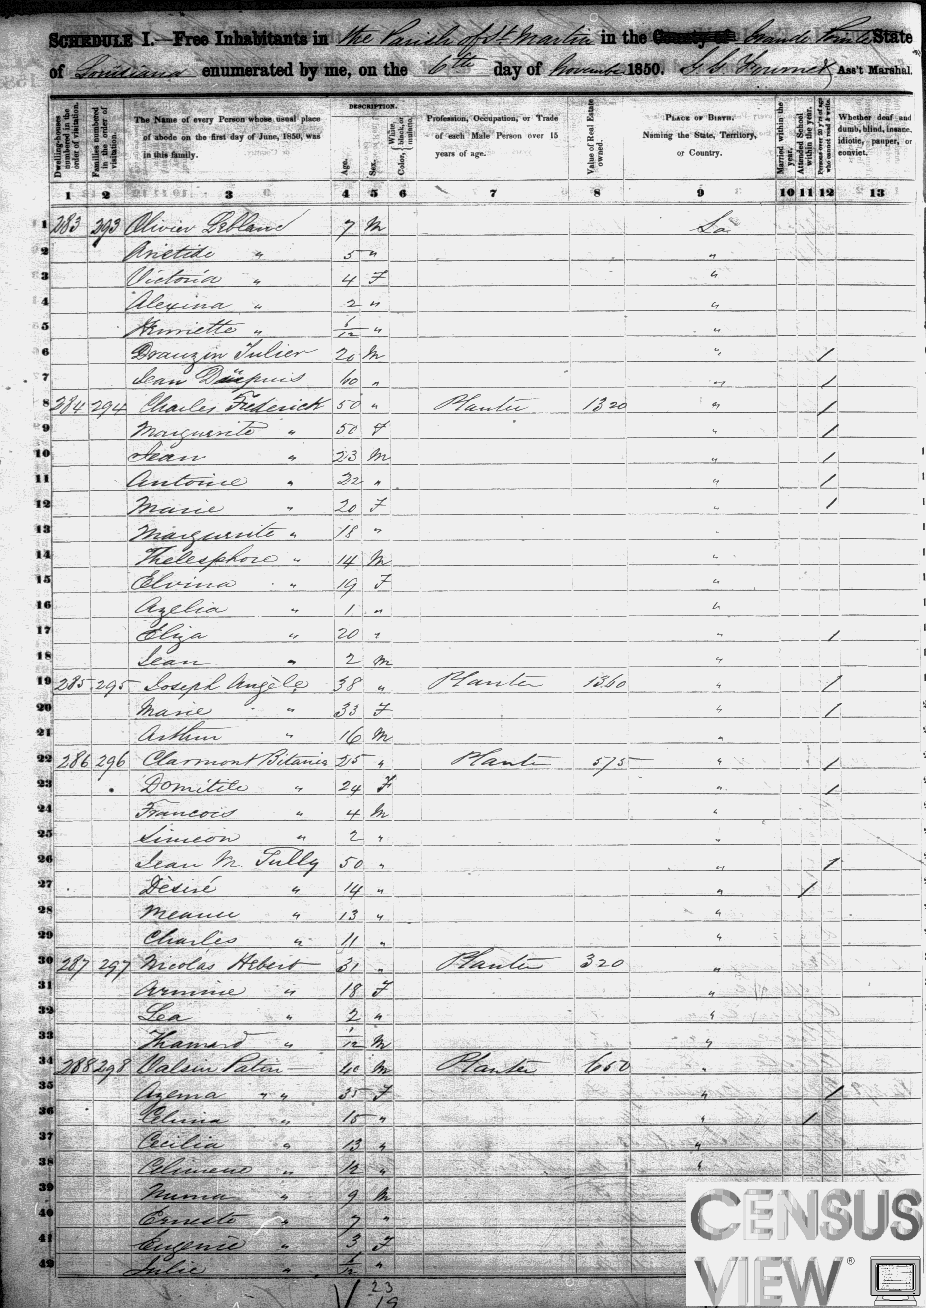 SCHEDULE I.—Free Inhabitants in the Parish of St Martin in the County of Grande Pointe State
of Louisiana enumerated by me, on the 6th day of November 1850. Ass't Marshal.
Dwelling-houses numbered in the order of visitation.
Families numbered in the order of visitation.
The Name of every Person whose usual place of abode on the first day of June, 1850, was in this family.
DESCRIPTION.
Age.
Sex.
Color, White, black, or mulatto.
Profession, Occupation, or Trade of each Male Person over 15 years of age.
Value of Real Estate owned.
PLACE OF BIRTH. Naming the State, Territory, or Country.
Married within the year.
Attended School within the year.
Persons over 20 y'rs of age who cannot read & write.
Whether deaf and dumb, blind, insane, idiotic, pauper, or convict.
1 2 3 4 5 6 7 8 9 10 11 12 13
1 283 293 Olivier Leblanc 7 M La
2 Aristide " 5 " "
3 Victoria " 4 F "
4 Alexina " 2 " "
5 Henriette " 1/12 " "
6 Drauzin 20 M " /
7 Jean Dupuis 60 " " /
8 284 294 Charles Frederick 50 " Planter 1320 " /
9 Marguerite " 50 F " /
10 Jean " 23 M " /
11 Antoine " 22 " " /
12 Marie " 20 F " /
13 Marguerite " 18 " "
14 Thelesphore " 14 M "
15 Elvina " 19 F "
16 Azelia " 1 " "
17 Eliza " 20 " " /
18 Jean " 2 M "
19 285 295 Joseph Angèle 38 " Planter 1360 " /
20 Marie " 33 F " /
21 Arthur " 16 M "
22 286 296 Clarmont 25 " Planter 575 " /
23 Domitile " 24 F " /
24 Francois " 4 M "
25 Simeon " 2 " "
26 Jean M. Tully 50 " " /
27 Désiré " 14 " " /
28 " 13 " "
29 Charles " 11 " "
30 287 297 Nicolas Hebert 31 " Planter 320 "
31 Armine " 18 F "
32 Lea " 2 " "
33 " 1/12 M "
34 288 298 Valsin Patin 40 M Planter 650 "
35 Azema " " 35 F " /
36 Celima " 15 " " /
37 Cecilia " 13 " "
38 Celimene " 12 " "
39 Numa " 9 M
40 Erneste " 7 "
41 Eugenie " 3 F
42 Julie " 1/12 "
23
19
CENSUS
VIEW®